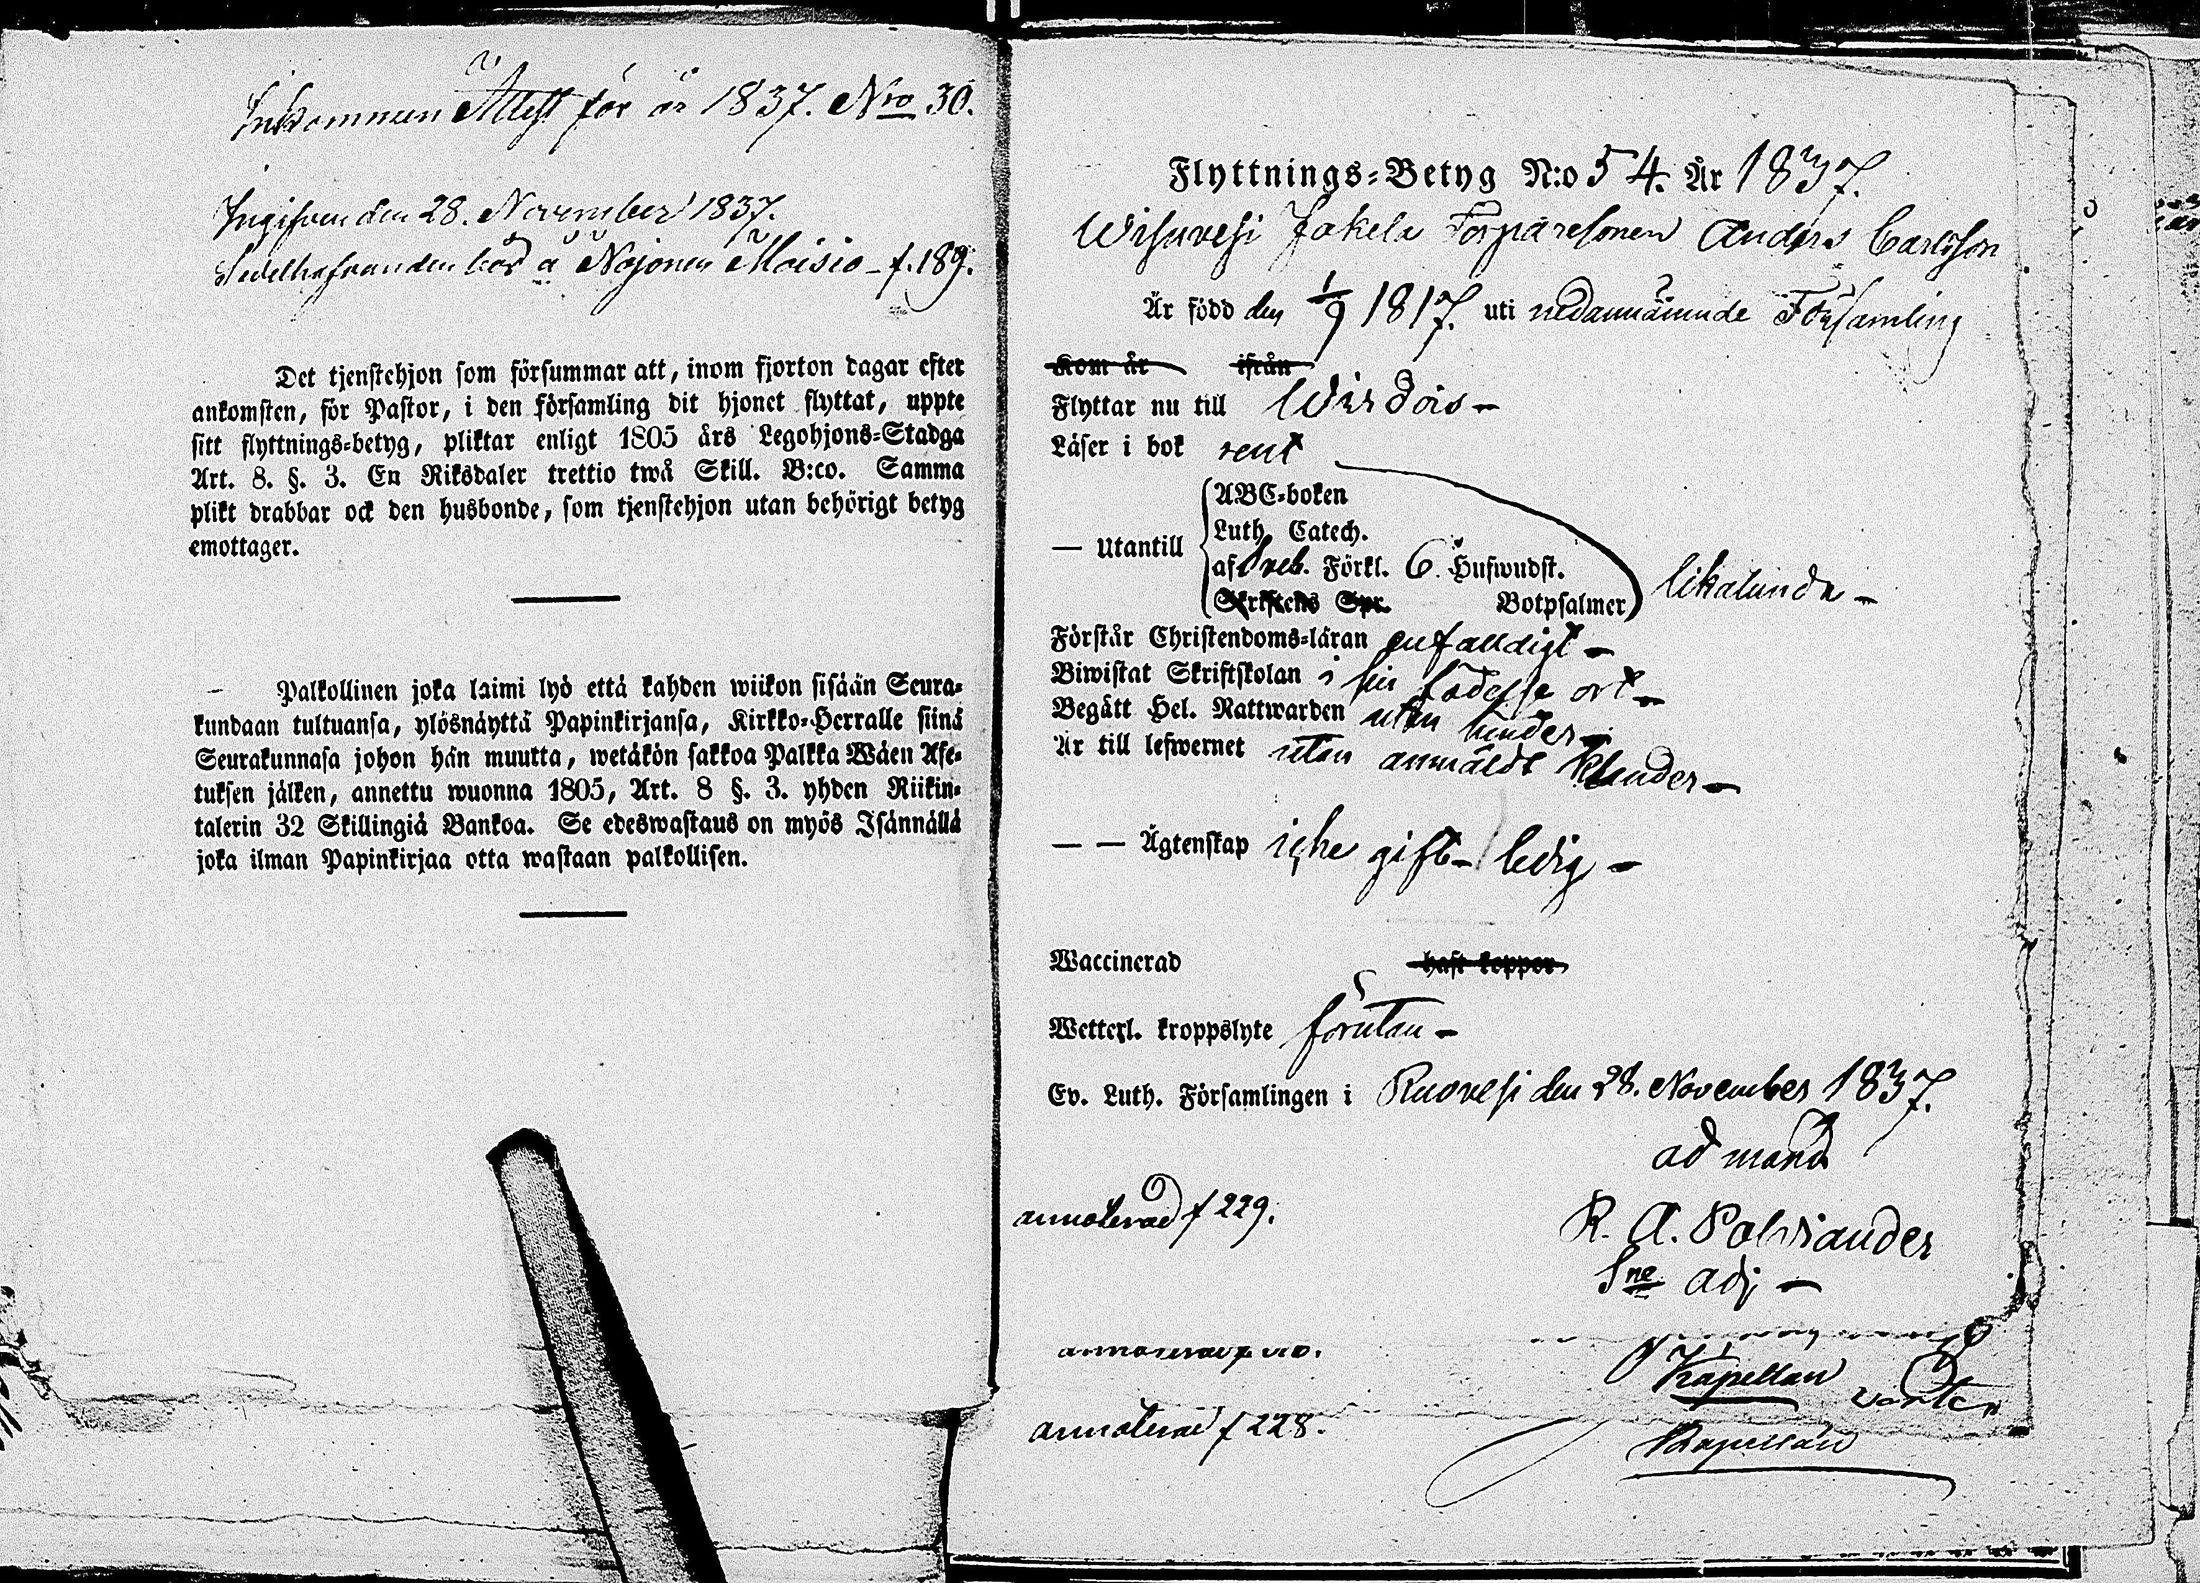 Inkommen Attest för år 1837. Nro 30.
Ingifven den 28. November 1837.
bör å Nojonen Moisio - f. 189.
Det tjenstehjon som försummar att, inom fjorton dagar efter
ankomsten, för Pastor, i den församling dit hjonet flyttat, uppte
sitt flyttnings-betyg, pliktar enligt 1805 års Legohjons-Stadga
Art. 8. §. 3. En Riksdaler trettio twå Skill. B:co. Samma
plikt drabbar ock den husbonde, som tjenstehjon utan behörigt betyg
emottager.
Palkollinen joka laimi lyö että kahden wiikon sisään Seura-
kundaan tultuansa, ylösnäyttä Papinkirjansa, Kirkko-Herralle siinä
Seurakunnasa johon hän muutta, wetäkön sakkoa Palkka Wäen Ase-
tuksen jälken, annettu wuonna 1805, Art. 8 §. 3. yhden Riikin-
talerin 32 Skillingiä Bankoa. Se edeswastaus on myös Isännällä
joka ilman Papinkirjaa otta wastaan palkollisen.
Flyttnings-Betyg N:o 54. År 1837.
Wisuvesi Jakela Torparesonen Anders Carlsson
Är född den 1/9 1817. uti nedannämnde Församling
Kom år ifrån
Flyttar nu till Wirdois -
Läser i bok rent
ABC-boken
Luth. Catech.
— Utantill
af Sveb. Förkl. 6. Hufwudst.
Skriftens Spr. Botpsalmer
likalunda -
Förstår Christendoms-läran enfaldigt -
Biwistat Skriftskolan i sin födelse ort -
Begått Hel. Nattwarden utan hinder -
Är till lefwernet utan anmäldt klander -
— — Ägtenskap icke gift - ledig -
Waccinerad haft koppor
Wetterl. kroppslyte förutan -
Ev. Luth. Församlingen i Ruovesi den 28. November 1837.
ad mand
annoterad f 229.
R. A. Polviander
Sne adj -
Kapellan
annoterad f 228.
Kapellan